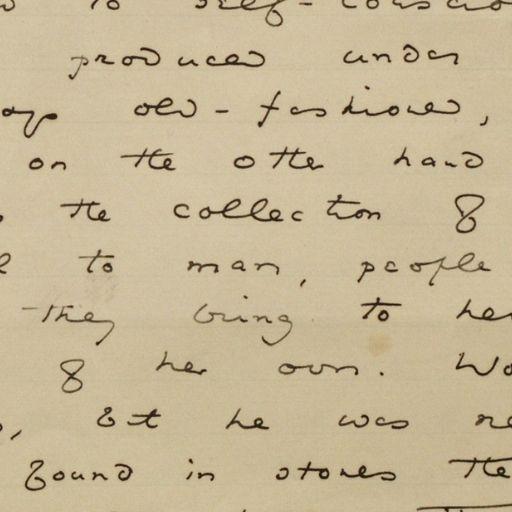 to self-conscio
produced under
old-fashioned,
on the other hand
the collection of
to man, people
they bring to her
of her own. Wo
but he was ne
found in stones the